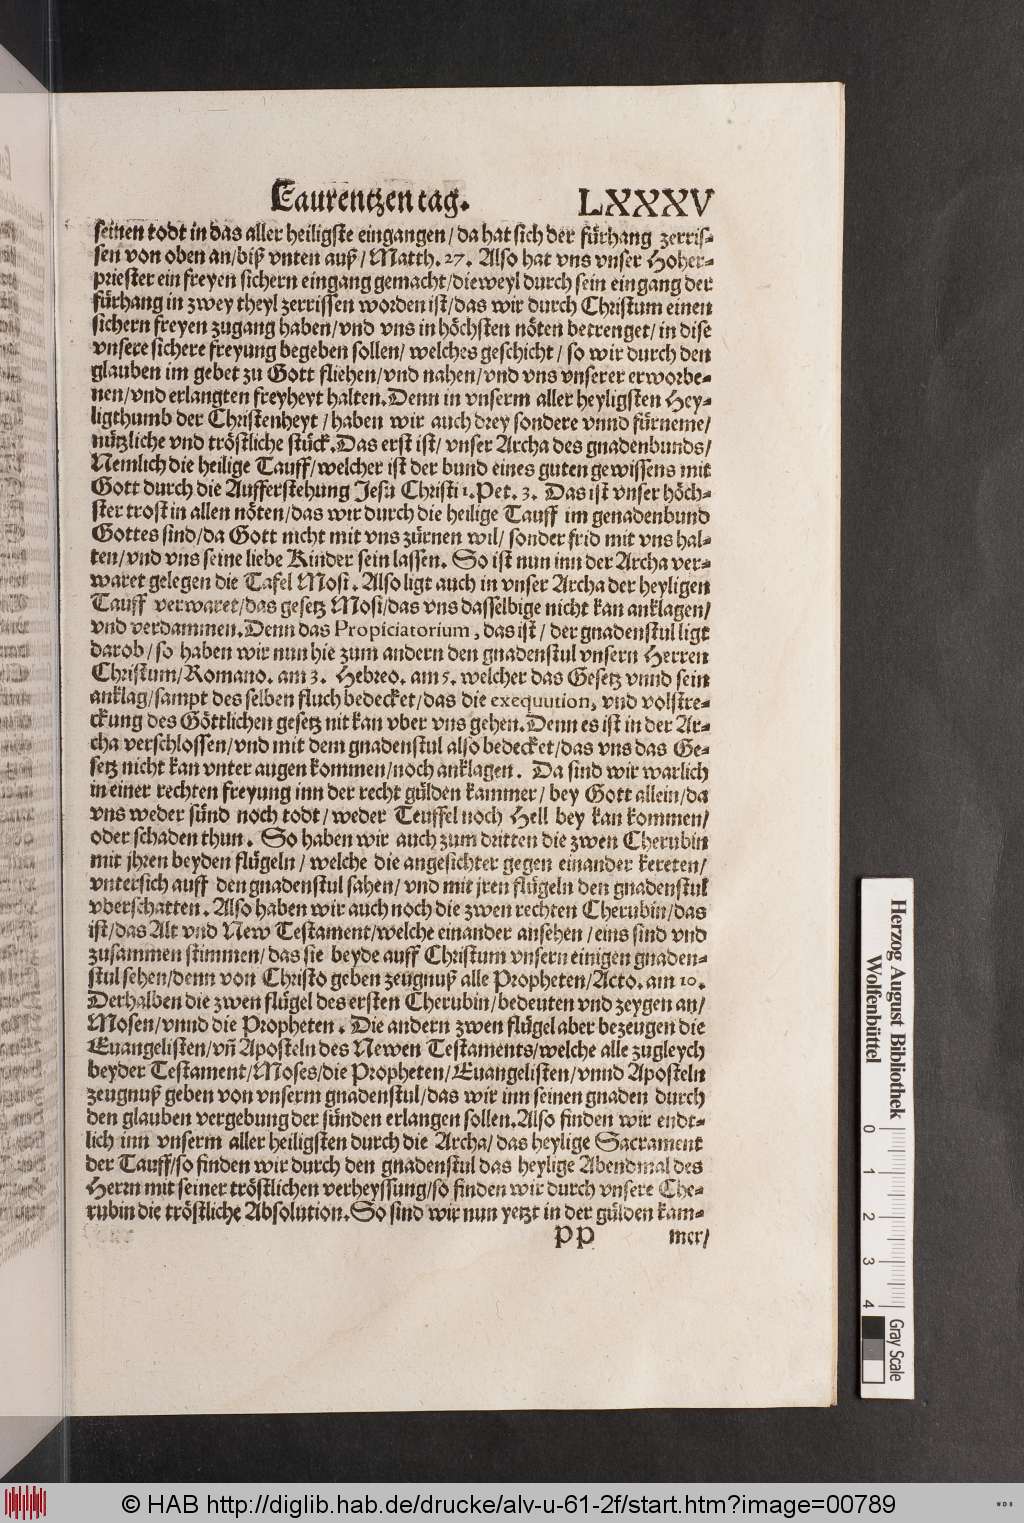 Laurentzen tag. LXXXV
seinen todt in das aller heiligste eingangen / da hat sich der fürhang zerris-
sen von oben an/biß vnten auß / Matth. 27. Also hat vns vnser Hoher-
priester ein freyen sichern eingang gemacht/dieweyl durch sein eingang der
fürhang in zwey theyl zerrissen worden ist/das wir durch Christum einen
sichern freyen zugang haben/vnd vns in höchsten nöten betrenget/in dise
vnsere sichere freyung begeben sollen/ welches geschicht / so wir durch den
glauben im gebet zu Gott fliehen/vnd nahen/vnd vns vnserer erworbe-
nen/vnd erlangten freyheyt halten. Denn in vnserm aller heyligsten Hey-
ligthumb der Christenheyt / haben wir auch drey sondere vnnd fürneme/
nützliche vnd tröstliche stück. Das erst ist/ vnser Archa des gnadenbunds/
Nemlich die heilige Tauff/welcher ist der bund eines guten gewissens mit
Gott durch die Aufferstehung Jesu Christi 1. Pet. 3. Das ist vnser höch-
ster trost in allen nöten/das wir durch die heilige Tauff im genadenbund
Gottes sind/da Gott nicht mit vns zürnen wil/ sonder frid mit vns hal-
ten/vnd vns seine liebe Kinder sein lassen. So ist nun inn der Archa ver-
waret gelegen die Tafel Mosi. Also ligt auch in vnser Archa der heyligen
Tauff verwaret/das gesetz Mosi/das vns dasselbige nicht kan anklagen/
vnd verdammen. Denn das Propiciatorium, das ist / der gnadenstul ligt
darob/so haben wir nun hie zum andern den gnadenstul vnsern Herren
Christum/Romano. am 3. Hebreo. am 5. welcher das Gesetz vnnd sein
anklag/sampt des selben fluch bedecket/das die exequution, vnd volstre-
ckung des Göttlichen gesetz nit kan vber vns gehen. Denn es ist in der Ar-
cha verschlossen/vnd mit dem gnadenstul also bedecket/das vns das Ge-
setz nicht kan vnter augen kommen/noch anklagen. Da sind wir warlich
in einer rechten freyung inn der recht gülden kammer/ bey Gott allein/da
vns weder sünd noch todt/ weder Teuffel noch Hell bey kan kommen/
oder schaden thun. So haben wir auch zum dritten die zwen Cherubin
mit jhren beyden flügeln / welche die angesichter gegen einander kereten/
vntersich auff den gnadenstul sahen/ vnd mit jren flügeln den gnadenstul
vberschatten. Also haben wir auch noch die zwen rechten Cherubin/das
ist/das Alt vnd New Testament/welche einander ansehen / eins sind vnd
zusammen stimmen/das sie beyde auff Christum vnsern einigen gnaden-
stul sehen/denn von Christo geben zeugnuß alle Propheten/Acto. am 10.
Derhalben die zwen flügel des ersten Cherubin/bedeuten vnd zeygen an/
Mosen/vnnd die Propheten. Die andern zwen flügel aber bezeugen die
Euangelisten/vñ Aposteln des Newen Testaments/welche alle zugleych
beyder Testament/Moses/die Propheten/Euangelisten/vnnd Aposteln
zeugnuß geben von vnserm gnadenstul/das wir inn seinen gnaden durch
den glauben vergebung der sünden erlangen sollen. Also finden wir endt-
lich inn vnserm aller heiligsten durch die Archa/ das heylige Sacrament
der Tauff/so finden wir durch den gnadenstul das heylige Abendmal des
Herrn mit seiner tröstlichen verheyssung/so finden wir durch vnsere Che-
rubin die tröstliche Absolution. So sind wir nun yetzt in der gülden kam-
PP mer/
Herzog August Bibliothek
Wolfenbüttel
0 1 2 3 4
Gray Scale
© HAB http://diglib.hab.de/drucke/alv-u-61-2f/start.htm?image=00789